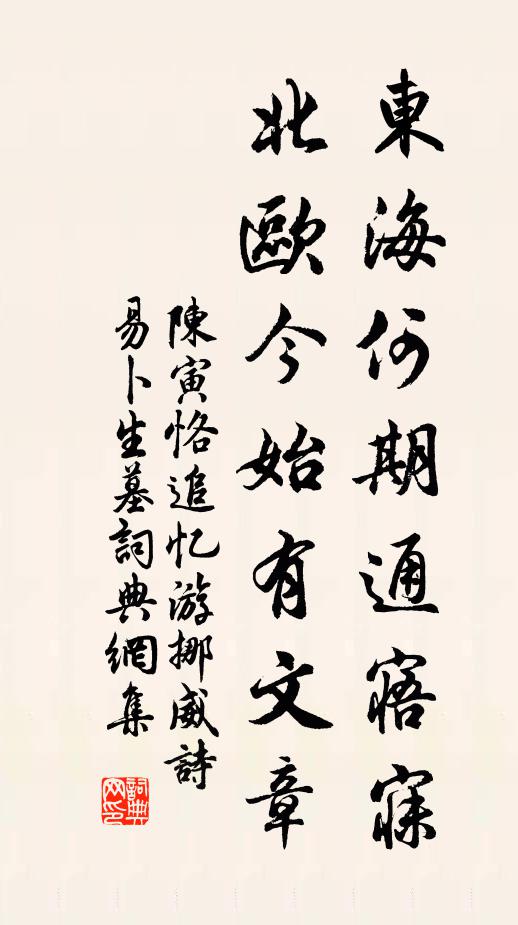 東海何期通寤寐
北歐今始有文章
陳寅恪追忆游挪威詩
易卜生墓詞典網集
詞典
网印